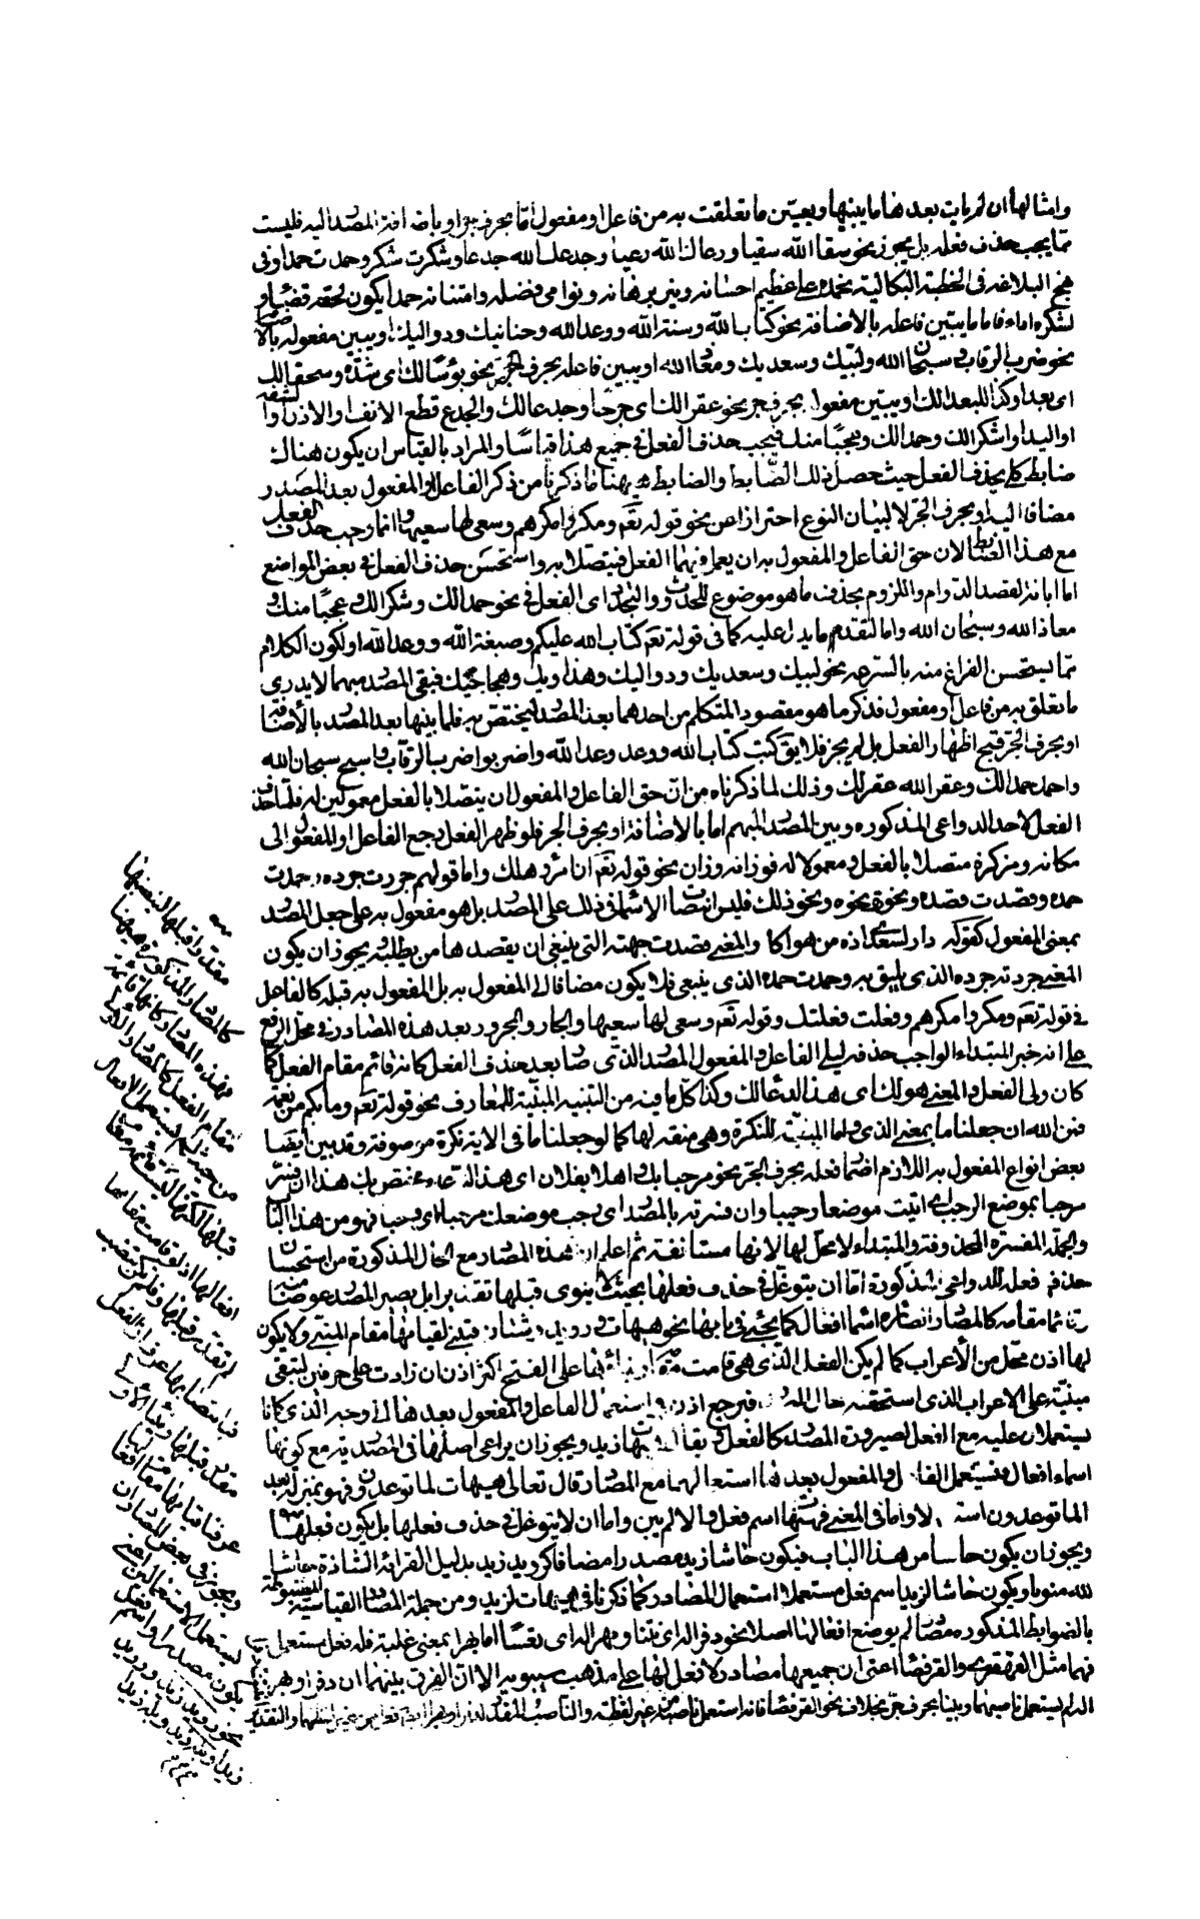 وامثالها ان لم يات بعدها ما يبينها ويعين ما تعلقت به من فاعل او مفعول اما بحرف جر او باضافة المصدر اليه فليست
مما يجب حذف فعله بل يجوز نحو سقاك الله سقيا ورعاك الله رعيا وجدعك الله جدعا وشكرت شكرا وحمدت حمدا وفى
نهج البلاغة فى الخطبة البكالية نحمده على عظيم احسانه ونير برهانه ونوامى فضله وامتنانه حمدا يكون لحقه قضاء و
لشكره اداء فاما ما يبين فاعله بالاضافة نحو كتاب الله وسنة الله ووعد الله وحنانيك ودواليك او يبين مفعوله بالاضافة
نحو ضرب الرقاب و سبحان الله ولبيك وسعديك ومعاذ الله او يبين فاعله بحرف الجر نحو بؤسا لك اى شدة وسحقا لك
اى بعدا وكذا بعدا لك او يبين مفعوله بحرف جر نحو عقرا لك اى جرحا وجدعا لك والجدع قطع الانف او الاذن او الشفة
او اليد او شكرا لك وحمدا لك وعجبا منك فيجب حذف الفعل فى جميع هذا قياسا والمراد بالقياس ان يكون هناك
ضابط كلى يحذف الفعل حيث حصل ذلك الضابط والضابط ههنا ما ذكرنا من ذكر الفاعل او المفعول بعد المصدر
مضافا اليه او بحرف الجر لا لبيان النوع احترازا من نحو قوله تعم ومكروا مكرهم وسعى لها سعيها وانما وجب حذف الفعل
مع هذا الضابط لان حق الفاعل والمفعول به ان يعمل فيهما الفعل فيتصلا به واستحسن حذف الفعل فى بعض المواضع
اما ابانة لقصد الدوام واللزوم بحذف ما هو موضوع للحدوث والتجدد اى الفعل فى نحو حمدا لك وشكرا لك وعجبا منك و
معاذ الله وسبحان الله واما لتقدم ما يدل عليه كما فى قوله تعم كتاب الله عليكم وصبغة الله ووعد الله او لكون الكلام
مما يستحسن الفراغ منه بالسرعة نحو لبيك وسعديك ودواليك وهذاذيك وهجاجيك فبقى المصدر مبهما لا يدرى
ما تعلق به من فاعل او مفعول فذكر ما هو مقصود المتكلم من احدهما بعد المصدر ليختص به فلما بينها بعد المصدر بالاضافة
او بحرف الجر قبح اظهار الفعل بل لم يجز فلا يق كتب كتاب الله ووعد وعد الله واضربوا ضرب الرقاب واسبح سبحان الله
واحمد حمدا لك وعقر الله عقرا لك وذلك لما ذكرناه من ان حق الفاعل والمفعول ان يتصلا بالفعل معمولين له فلما حذف
الفعل لاحد الدواعى المذكورة وبين المصدر المبهم اما بالاضافة او بحرف الجر فلو ظهر الفعل رجع الفاعل او المفعول الى
مكانه ومركزه متصلا بالفعل ومعمولا له فوزانه وزان نحو قوله تعم ان امرؤ هلك واما قولهم جردت جرده وحمدت
حمده وقصدت قصده ونحوت نحوه ونحو ذلك فليس انتصاب الاسم فى ذلك على المصدر بل هو مفعول به على جعل المصدر
بمعنى المفعول كقوله دار لسعدى اذه من هواكا والمعنى قصدت جهته التى ينبغى ان يقصدها من يطلبه ويجوز ان يكون
المعنى جردته جرده الذى يليق به وحمدت حمده الذى ينبغى فلا يكون مضافا الى المفعول به بل المفعول به قبله كالفاعل
فى قوله تعم ومكروا مكرهم وفعلت فعلتك وقوله تعم وسعى لها سعيها والجار والمجرور بعد هذه المصادر فى محل الرفع
على انه خبر المبتداء الواجب حذفه ليلى الفاعل او المفعول المصدر الذى صار بعد حذف الفعل كانه قائم مقام الفعل كما
كان ولى الفعل والمعنى هو لك اى هذا الدعاء لك وكذا كل ما فيه من التبيينية المبينة للمعارف نحو قوله تعم وما بكم من نعمة
فمن الله ان جعلنا ما بمعنى الذى واما المبينة للنكرة وهى صفة لها كما لو جعلنا ما فى الاية نكرة موصوفة وقد يبين ايضا
بعض انواع المفعول به اللازم اضمار فعله بحرف الجر نحو مرحبا بك واهلا بفلان اى هذا الدعاء مختص بك هذا ان فسر
مرحبا بموضع الرحب اى اتيت موضعا رحيبا وان فسرته بالمصدر اى رحب موضعك مرحبا اى رحبا فهو من هذا الباب
والجملة المفسرة المحذوفة المبتداء لا محل لها لانها مستانفة ثم اعلم ان هذه المصادر مع الحال المذكورة من استحسان
حذف فعله للدواعى المذكورة اما ان يتوغل فى حذف فعلها بحيث لا ينوى قبلها تقديرا بل يصير المصدر عوضا منه
قائما مقامه كالمصادر الصائرة اسماء افعال كما يجئ فى بابها نحو هيهات ورويد وشتان فتبنى لقيامها مقام المبنى ولا يكون
لها اذن محل من الأعراب كما لم يكن الفعل الذى هى قامت مقامه وبناؤها على الفتح اكثر اذن ان زادت على حرفين لتبقى
مبنية على الاعراب الذى استحقته حال المصدرية فيرجع اذن فى استعمال الفاعل والمفعول بعدها الى وجه الذى كانا
يستعملان عليه مع الفعل لصيرورة المصدر كالفعل فيقال هيهات زيد ويجوز ان يراعى اصلها فى المصدرية مع كونها
اسماء افعال فيستعمل الفاعل والمفعول بعدها استعمالهما مع المصادر قال تعالى هيهات لما توعدون فهو بمنزلة بعد
لما توعدون استعمالا واما فى المعنى فهيهات اسم فعل واللام للتبيين واما ان لا يتوغل فى حذف فعلها بل يكون فعلها
ويجوز ان يكون حاشا من هذا الباب فيكون حاشا زيد مصدرا مضافا كرويد زيد بدليل القراءة الشاذة حاشا
لله منونا ويكون حاشا لزيد اسم فعل مستعملا استعمال المصادر كما ذكرنا فى هيهات لزيد ومن جملة المصادر القياسية المضبوطة
بالضوابط المذكورة مصادر لم يوضع افعالها اصلا نحو دفرا له اى نتنا وبهرا له اى تعسا اما بهرا بمعنى غلبة فله فعل مستعمل
فهما مثل القهقرى والقرفصا اعنى ان جميعها مصادر لا فعل لها على مذهب سيبويه الا ان الفرق بينهما ان دفرا وبهرا
لم يستعمل ناصبهما وبينا بحرف جر بخلاف نحو القرفصا فانه استعمل ناصبه من غير لفظه والناصب المقدر
مقدرا قبلها لينصبها
كالمصادر المذكورة ههنا
فهذه المصادر كانها قائمة
مقام الفعل كالمصادر الاول
من حيث لم يستعمل الافعال
قبلها لكنها ليست قائمة مقام
افعالها اذ لو قامت مقامها
لم تقدر قبلها فلم تكن تنتصب
فبانتصابها عرفنا ان الفعل
مقدر قبلها وببناء الاول
عرفنا قيامها مقام افعالها
ويجوز فى بعض المصادر ان
يستعمل الاستعمالين اعنى
يكون مصدرا واسم فعل
نحو رويد زيد ورويد
زيدا وبله زيد وبله زيدا